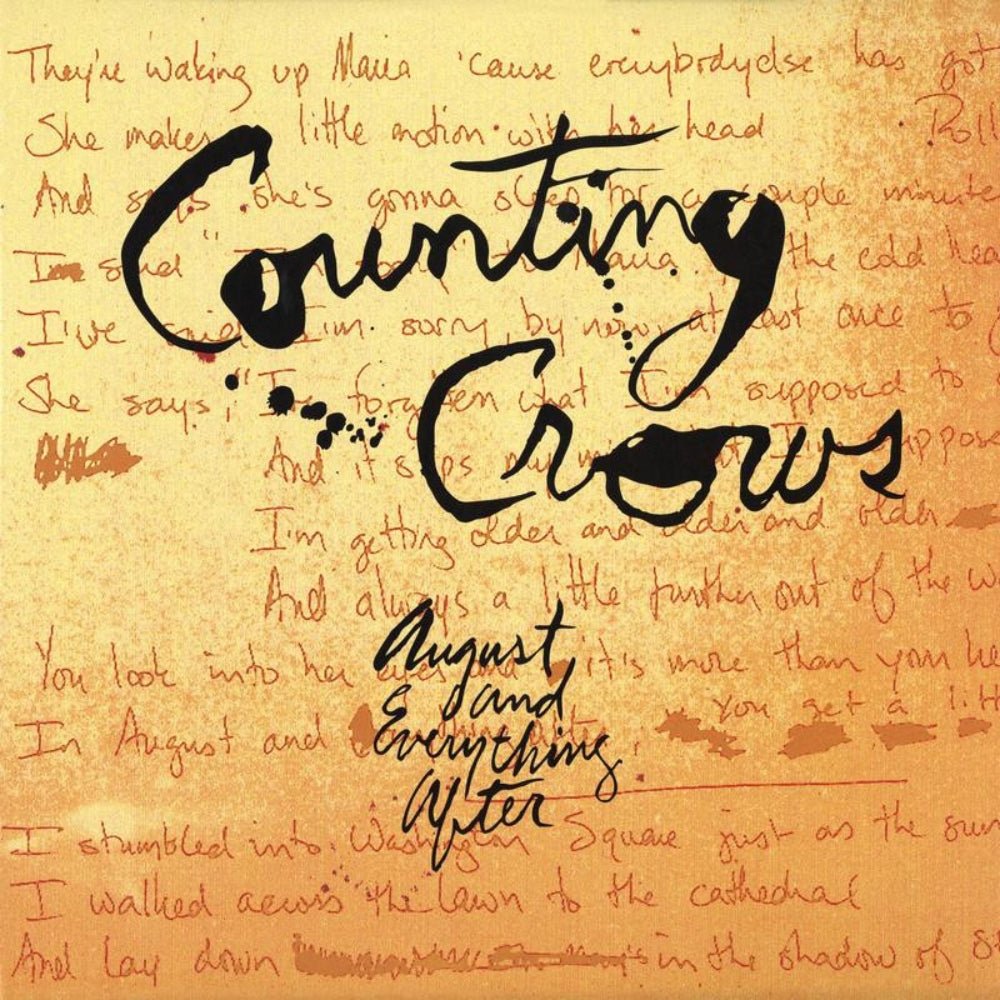 They're waking up Maria 'cause everybody else has got
She makes little motion with her head Roll
And says she's gonna sleep for a couple minute
Counting
In said "I'm sorry Maria the cold hea
I've said I'm sorry by now, at least once to
Crows
She says, "I've forgotten what I'm supposed to
And it slips my that I'm suppose
I'm getting older and older and older
And always a little further out of the w
August
and
Everything
After
You look into her eyes and it's more than your hea
In August and you get a litt
I stumbled into Washington Square just as the sun
I walked across the lawn to the cathedral
And lay down in the shadow of S